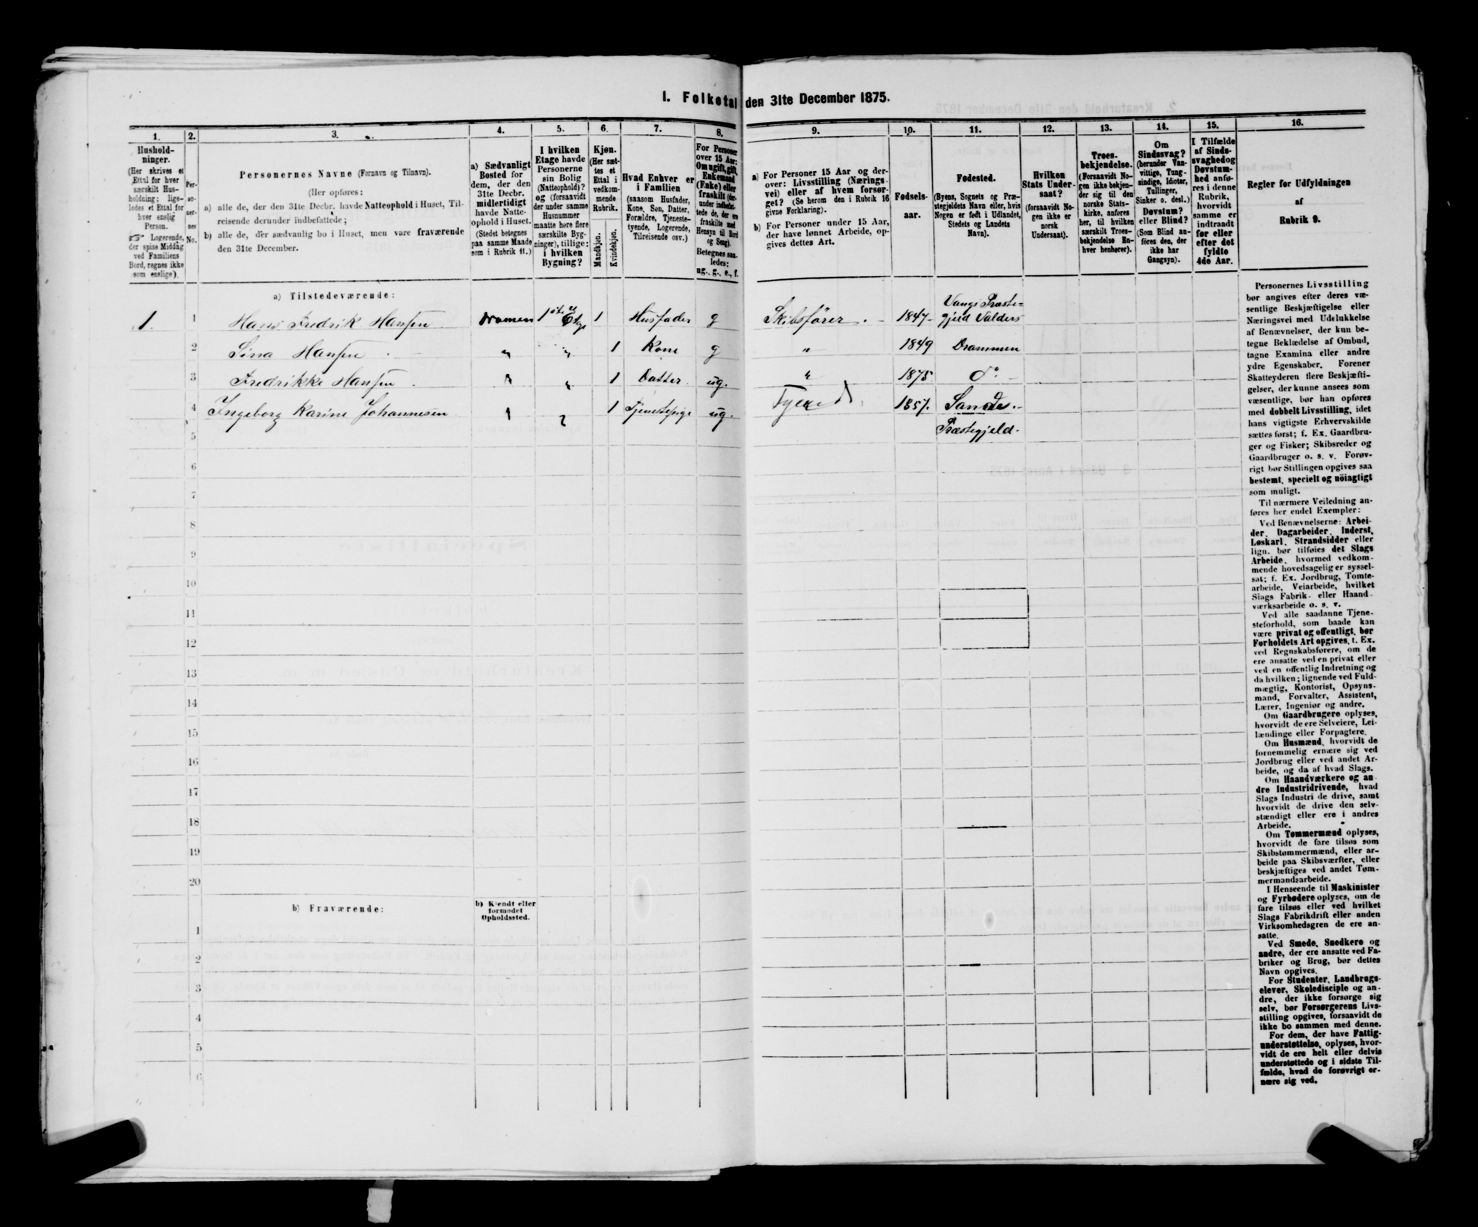 I. Folketal den 31te December 1875.
1. 2. 3. 4. 5. 6. 7. 8. 9. 10. 11. 12. 13. 14. 15. 16.
Hushold-
ninger.
(Her skrives et
Ettal for hver
særskilt Hus-
holdning; lige-
ledes et Ettal for
hver enslig
Person.
☞ Logerende,
der spise Middag
ved Familiens
Bord, regnes ikke
som enslige).
Per-
so-
ner-
nes
No.
Personernes Navne (Fornavn og Tilnavn).
(Her opføres:
a) alle de, der den 31te Decbr. havde Natteophold i Huset, Til-
reisende derunder indbefattede;
b) alle de, der sædvanlig bo i Huset, men vare fraværende
den 31te December.
a) Sædvanligt
Bosted for
dem, der den
31te Decbr.
midlertidigt
havde Natte-
ophold i Huset.
(Stedet betegnes
paa samme Maade
som i Rubrik 11.)
I hvilken
Etage havde
Personerne
sin Bolig
(Natteophold)?
og (forsaavidt
der under samme
Husnummer
maatte høre flere
særskilte Byg-
ninger), tillige:
i hvilken
Bygning?
Kjøn.
(Her sæt-
tes et
Ettal i
vedkom-
mende
Rubrik.
Mandkjøn.
Kvindekjøn.
Hvad Enhver er
i Familien
(saasom Husfader,
Kone, Søn, Datter,
Forældre, Tjeneste-
tyende, Logerende,
Tilreisende osv.)
For Personer
over 15 Aar:
Om ugift, gift,
Enkemand
(Enke) eller
fraskilt (der-
under indbefat-
tede de, der ere
fraskilte med
Hensyn til Bord
og Seng).
Betegnes saa-
ledes:
ug., g., e., f.
a) For Personer 15 Aar og der-
over: Livsstilling (Nærings-
vei) eller af hvem forsør-
get? (Se herom den i Rubrik 16
givne Forklaring).
b) For Personer under 15 Aar,
der have lønnet Arbeide, op-
gives dettes Art.
Fødsels-
aar.
Fødested.
(Byens, Sognets og Præ-
stegjeldets Navn eller, hvis
Nogen er født i Udlandet,
Stedets og Landets
Navn).
Hvilken
Stats Under-
saat?
(forsaavidt No-
gen ikke er
norsk
Undersaat).
Troes-
bekjendelse.
(Forsaavidt No-
gen ikke bekjen-
der sig til den
norske Stats-
kirke, anføres
her, til hvilken
særskilt Troes-
bekjendelse En-
hver henhører).
Om
Sindssvag?
(herunder Van-
vittige, Tung-
sindige, Idioter,
Tullinger,
Sinker o. desl.)
Døvstum?
eller Blind?
(Som Blind an-
føres den, der
ikke har
Gangsyn).
I Tilfælde
af Sinds-
svaghed og
Døvstum-
hed anfø-
res i denne
Rubrik,
hvorvidt
samme er
indtraadt
før eller
efter det
fyldte
4de Aar.
Regler for Udfyldningen
af
Rubrik 9.
a) Tilstedeværende:
1. 1 Hans Fredrik Hansen Dramen 1ste Etage 1 Husfader g Skibsfører. 1847 Vangs Præste-
gjeld Valders
2 Sina Hansen „ „ 1 Kone g „ 1849 Drammen
3 Fredrikke Hansen „ „ 1 Datter ug. „ 1875 do
4 Ingeborg Karine Johannesen „ „ 1 Tjenestepige ug. Tyende 1857. Sande
Præstegjeld.
5
6
7
8
9
10
11
12
13
14
15
16
17
18
19
20
b) Fraværende:
b) Kjendt eller
formodet
Opholdssted.
1
2
3
4
5
6
Personernes Livsstilling
bør angives efter deres væ-
sentlige Beskjæftigelse eller
Næringsvei med Udelukkelse
af Benævnelser, der kun be-
tegne Beklædelse af Ombud,
tagne Examina eller andre
ydre Egenskaber. Forener
Skatteyderen flere Beskjæfti-
gelser, der kunne ansees som
væsentlige, bør han opføres
med dobbelt Livsstilling, idet
hans vigtigste Erhvervskilde
sættes først; f. Ex. Gaardbru-
ger og Fisker; Skibsreder og
Gaardbruger o. s. v. Forøv-
rigt bør Stillingen opgives saa
bestemt, specielt og nöiagtigt
som muligt.
Til nærmere Veiledning an-
føres her endel Exempler:
Ved Benævnelserne: Arbei-
der, Dagarbeider, Inderst,
Løskarl, Strandsidder eller
lign. bør tilføies det Slags
Arbeide, hvormed vedkom-
mende hovedsagelig er syssel-
sat; f. Ex. Jordbrug, Tomte-
arbeide, Veiarbeide, hvilket
Slags Fabrik- eller Haand-
værksarbeide o. s. v.
Ved alle saadanne Tjene-
steforhold, som baade kan
være privat og offentligt, bør
Forholdets Art opgives, t. Ex.
ved Regnskabsførere, om de
ere ansatte ved en privat eller
ved en offentlig Indretning og
da hvilken; lignende ved Fuld-
mægtig, Kontorist, Opsyns-
mand, Forvalter, Assistent,
Lærer, Ingeniør og andre.
Om Gaardbrugere oplyses,
hvorvidt de ere Selveiere, Lei-
lændinge eller Forpagtere.
Om Husmænd, hvorvidt de
fornemmelig ernære sig ved
Jordbrug eller ved andet Ar-
beide, og da af hvad Slags.
Om Haandværkere og an-
dre Industridrivende, hvad
Slags Industri de drive, samt
hvorvidt de drive den selv-
stændigt eller ere i andres
Arbeide.
Om Tømmermænd oplyses,
hvorvidt de fare tilsøs som
Skibstømmermænd, eller ar-
beide paa Skibsværfter, eller
beskjæftiges ved andet Tøm-
mermandsarbeide.
I Henseende til Maskinister
og Fyrbødere oplyses, om de
fare tilsøs eller ved hvilket
Slags Fabrikdrift eller anden
Virksomhedsgren de ere an-
satte.
Ved Smede, Snedkere og
andre, der ere ansatte ved Fa-
briker og Brug, bør dettes
Navn opgives.
For Studenter, Landbrugs-
elever, Skoledisciple og an-
dre, der ikke forsørge sig
selv, bør Forsørgerens Livs-
stilling opgives, forsaavidt de
ikke bo sammen med denne.
For dem, der have Fattig-
understøttelse, oplyses, hvor-
vidt de ere helt eller delvis
understøttede og i sidste Til-
fælde, hvad de forøvrigt er-
nære sig ved.